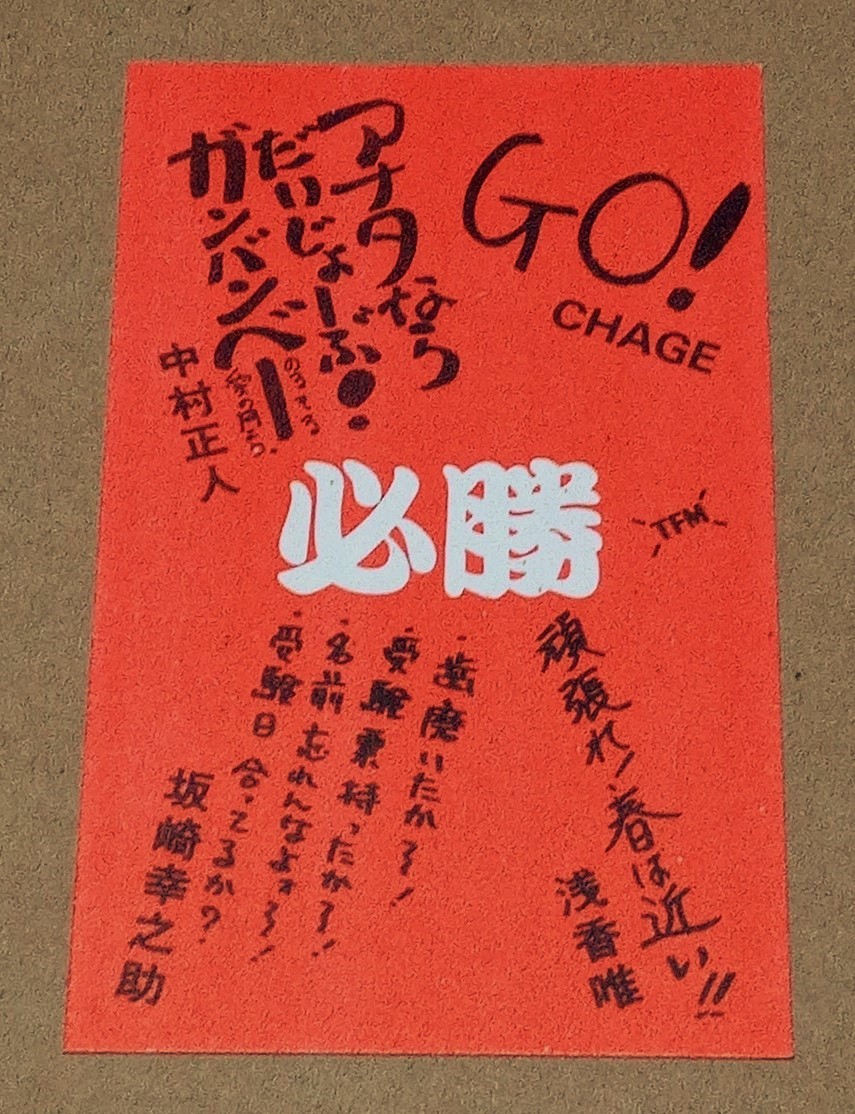 GO!
CHAGE
アナタなら
だいじょーぶ!
ガンバンベー
中村正人
必勝
TFM
頑張れ!春は近い!!
浅香唯
・歯磨いたか〜!
・受験票持ったか〜!
・名前忘れんなよ〜!
・受験日合ってるか?
坂崎幸之助